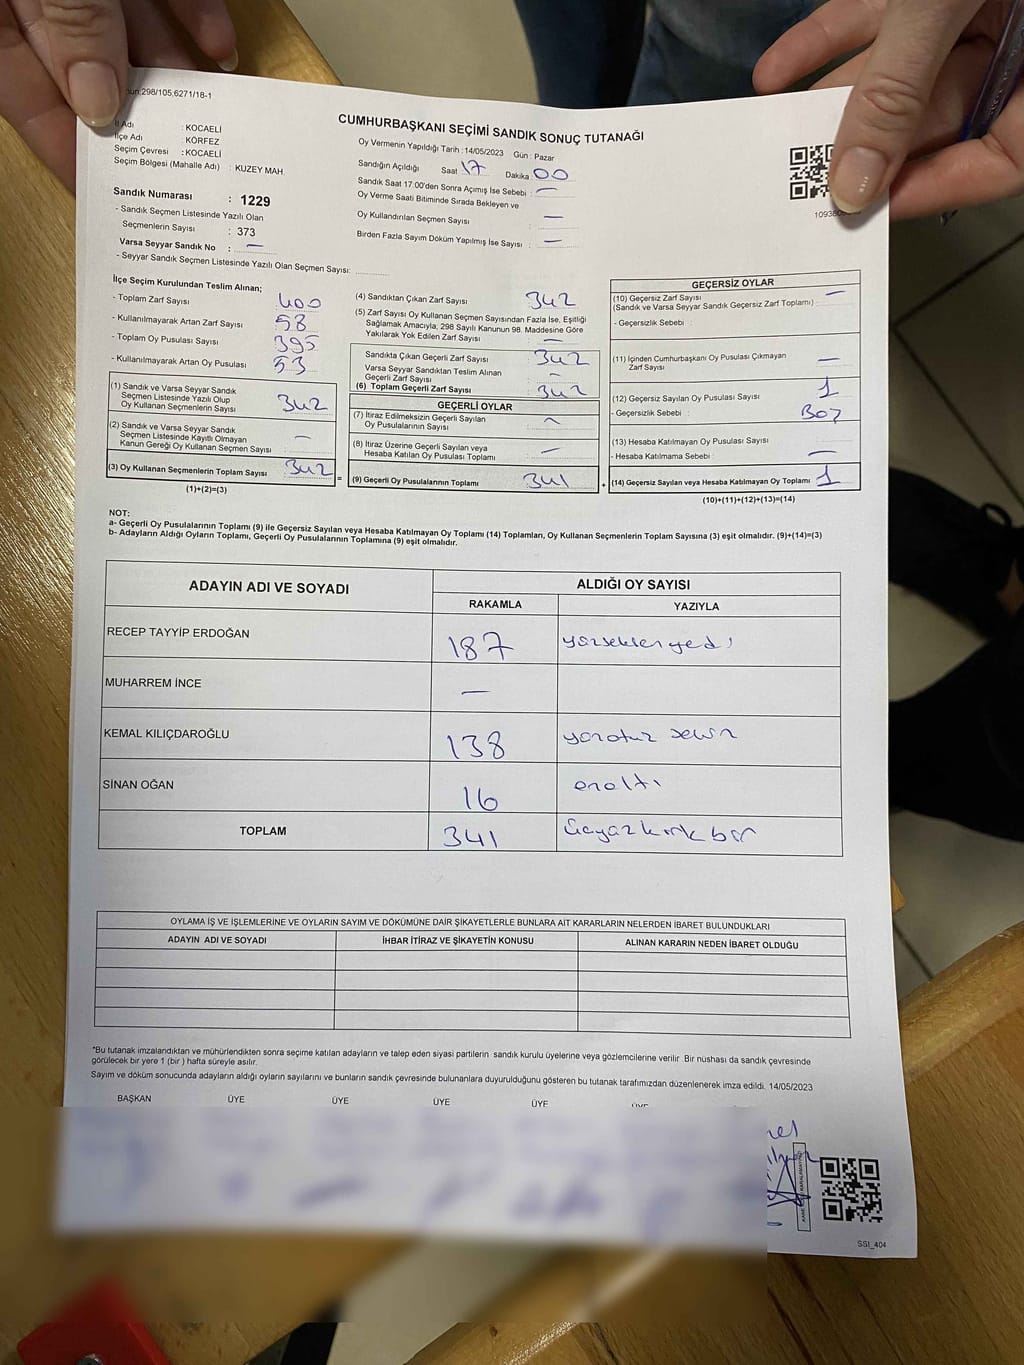 298/105,6271/18-1
CUMHURBAŞKANI SEÇİMİ SANDIK SONUÇ TUTANAĞI
İl Adı : KOCAELİ
İlçe Adı : KÖRFEZ
Seçim Çevresi : KOCAELİ
Seçim Bölgesi (Mahalle Adı) : KUZEY MAH.
Sandık Numarası : 1229
- Sandık Seçmen Listesinde Yazılı Olan
Seçmenlerin Sayısı : 373
Varsa Seyyar Sandık No : —
- Seyyar Sandık Seçmen Listesinde Yazılı Olan Seçmen Sayısı:
Oy Vermenin Yapıldığı Tarih : 14/05/2023 Gün : Pazar
Sandığın Açıldığı Saat 17 Dakika 00
Sandık Saat 17:00'den Sonra Açımış İse Sebebi : —
Oy Verme Saati Bitiminde Sırada Bekleyen ve
Oy Kullandırılan Seçmen Sayısı —
Birden Fazla Sayım Döküm Yapılmış İse Sayısı : —
İlçe Seçim Kurulundan Teslim Alınan;
- Toplam Zarf Sayısı 400
- Kullanılmayarak Artan Zarf Sayısı 58
- Toplam Oy Pusulası Sayısı 395
- Kullanılmayarak Artan Oy Pusulası 53
(1) Sandık ve Varsa Seyyar Sandık
Seçmen Listesinde Yazılı Olup
Oy Kullanan Seçmenlerin Sayısı 342
(2) Sandık ve Varsa Seyyar Sandık
Seçmen Listesinde Kayıtlı Olmayan
Kanun Gereği Oy Kullanan Seçmen Sayısı —
(3) Oy Kullanan Seçmenlerin Toplam Sayısı 342
(1)+(2)=(3)
(4) Sandıktan Çıkan Zarf Sayısı 342
(5) Zarf Sayısı Oy Kullanan Seçmen Sayısından Fazla İse, Eşitliği
Sağlamak Amacıyla; 298 Sayılı Kanunun 98. Maddesine Göre
Yakılarak Yok Edilen Zarf Sayısı : —
Sandıkta Çıkan Geçerli Zarf Sayısı 342
Varsa Seyyar Sandıktan Teslim Alınan
Geçerli Zarf Sayısı —
(6) Toplam Geçerli Zarf Sayısı 342
GEÇERLİ OYLAR
(7) İtiraz Edilmeksizin Geçerli Sayılan
Oy Pusulalarının Sayısı —
(8) İtiraz Üzerine Geçerli Sayılan veya
Hesaba Katılan Oy Pusulası Toplamı —
= (9) Geçerli Oy Pusulalarının Toplamı 341 +
GEÇERSİZ OYLAR
(10) Geçersiz Zarf Sayısı —
(Sandık ve Varsa Seyyar Sandık Geçersiz Zarf Toplamı)
- Geçersizlik Sebebi :
(11) İçinden Cumhurbaşkanı Oy Pusulası Çıkmayan
Zarf Sayısı —
(12) Geçersiz Sayılan Oy Pusulası Sayısı 1
- Geçersizlik Sebebi :
(13) Hesaba Katılmayan Oy Pusulası Sayısı
- Hesaba Katılmama Sebebi : —
(14) Geçersiz Sayılan veya Hesaba Katılmayan Oy Toplamı 1
(10)+(11)+(12)+(13)=(14)
NOT:
a- Geçerli Oy Pusulalarının Toplamı (9) ile Geçersiz Sayılan veya Hesaba Katılmayan Oy Toplamı (14) Toplamları, Oy Kullanan Seçmenlerin Toplam Sayısına (3) eşit olmalıdır. (9)+(14)=(3)
b- Adayların Aldığı Oyların Toplamı, Geçerli Oy Pusulalarının Toplamına (9) eşit olmalıdır.
ADAYIN ADI VE SOYADI ALDIĞI OY SAYISI
RAKAMLA YAZIYLA
RECEP TAYYİP ERDOĞAN 187 yüzseksenyedi
MUHARREM İNCE —
KEMAL KILIÇDAROĞLU 138 yüzotuz sekiz
SİNAN OĞAN 16 onaltı
TOPLAM 341 üçyüzkırk bir
OYLAMA İŞ VE İŞLEMLERİNE VE OYLARIN SAYIM VE DÖKÜMÜNE DAİR ŞİKAYETLERLE BUNLARA AİT KARARLARIN NELERDEN İBARET BULUNDUKLARI
ADAYIN ADI VE SOYADI İHBAR İTİRAZ VE ŞİKAYETİN KONUSU ALINAN KARARIN NEDEN İBARET OLDUĞU
*Bu tutanak imzalandıktan ve mühürlendikten sonra seçime katılan adayların ve talep eden siyasi partilerin sandık kurulu üyelerine veya gözlemcilerine verilir. Bir nüshası da sandık çevresinde
görülecek bir yere 1 (bir ) hafta süreyle asılır.
Sayım ve döküm sonucunda adayların aldığı oyların sayılarını ve bunların sandık çevresinde bulunanlara duyurulduğunu gösteren bu tutanak tarafımızdan düzenlenerek imza edildi. 14/05/2023
BAŞKAN ÜYE ÜYE ÜYE ÜYE
SSI_404